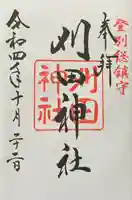 登別総鎮守
奉拝
刈田神社
刈田
神社
令和四年十月二十二日